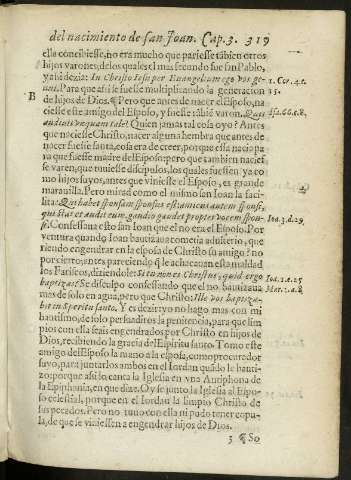 del nacimiento de san Joan. Cap. 3. 319
ella concibiesse, no era mucho que pariesse tābien otros
hijos varones, de los quales el mas fecundo fue san Pablo,
y assi dezia: In Christo Iesu per Euangelium ego vos ge-
1. Cor. 4. c.
nui. Para que assi se fuesse multiplicando la generacion
15.
B
de hijos de Dios. ¶ Pero que antes de nacer el Esposo, na
ciesse este amigo del Esposo, y fuesse tābiē varon. Quis
Isa. 66. c. 8.
audiuit vnquam tale? Quien jamas tal cosa oyo? Antes
que naciesse Christo, nacer alguna hembra que antes de
nacer fuesse santa, cosa era de creer, porque essa nacia pa
ra que fuesse madre del Esposo: pero que tambien nacies
se varon, que tuuiesse discipulos, los quales fuessen ya co
mo hijos suyos, antes que viniesse el Esposo, es grande
marauilla. Pero mirad como el mismo san Ioan la faci-
lita: Qui habet sponsam sponsus est: amicus autem sponsi,
qui stat et audit eum, gaudio gaudet propter vocem spon-
Ioa. 3. d. 29.
si. Confessaua esto san Ioan que el no era el Esposo. Por
ventura quando Ioan bautizaua cometia adulterio, que-
riendo engendrar en la esposa de Christo su amigo? no
por cierto; antes pareciendo q̄ le achacauan esta maldad
los Fariseos, diziendole: Si tu non es Christus, quid ergo
Ioa. 1. c. 25
baptizas? Se disculpo confessando que el no bautizaua
Mar. 1. a. 8.
mas de solo en agua, pero que Christo: Ille vos baptiza-
bit in Spiritu santo. Y es dezir: yo no hago mas con mi
bautismo, de solo persuadiros la penitencia, para que lim
pios con ella seais engendrados por Christo en hijos de
Dios, recibiendo la gracia del Espiritu santo. Tomo este
amigo del Esposo la mano a la esposa, como procurador
suyo, para juntarlos ambos en el Iordan quādo le bauti-
zo: porque assi lo canta la Iglesia en vna Antiphona de
la Epiphania, en que dize. Oy se junto la Iglesia al Espo-
so celestial, porque en el Iordan la limpio Christo de
sus pecados. Pero no tuuo con ella ni pudo tener copu-
la, de que se viniessen a engendrar hijos de Dios.
3 ¶ So